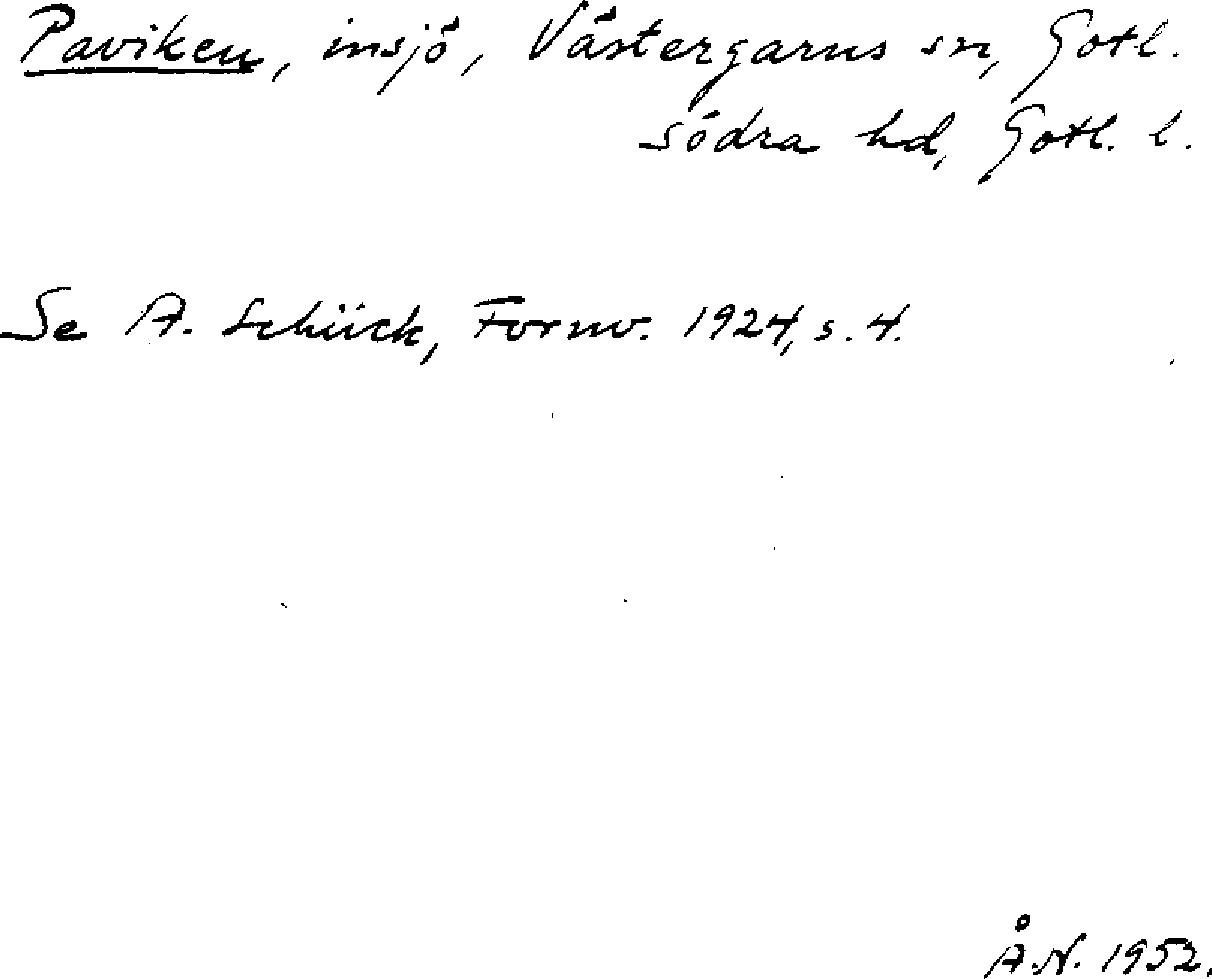 Paviken, insjö, Västergarns sn, Gotl.
södra hd, Gotl. l.
Se A. Schück, Fornv. 1924, s. 4.
Å.N. 1952.